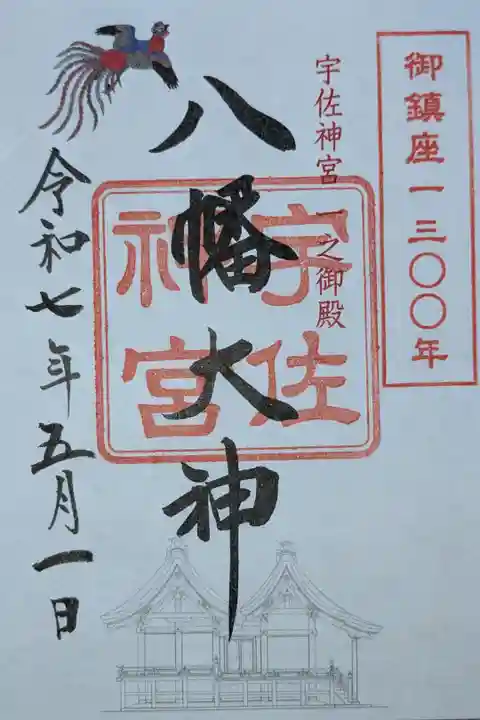 御鎮座一三〇〇年
宇佐神宮一之御殿
八幡大神
宇佐
神宮
令和七年五月一日